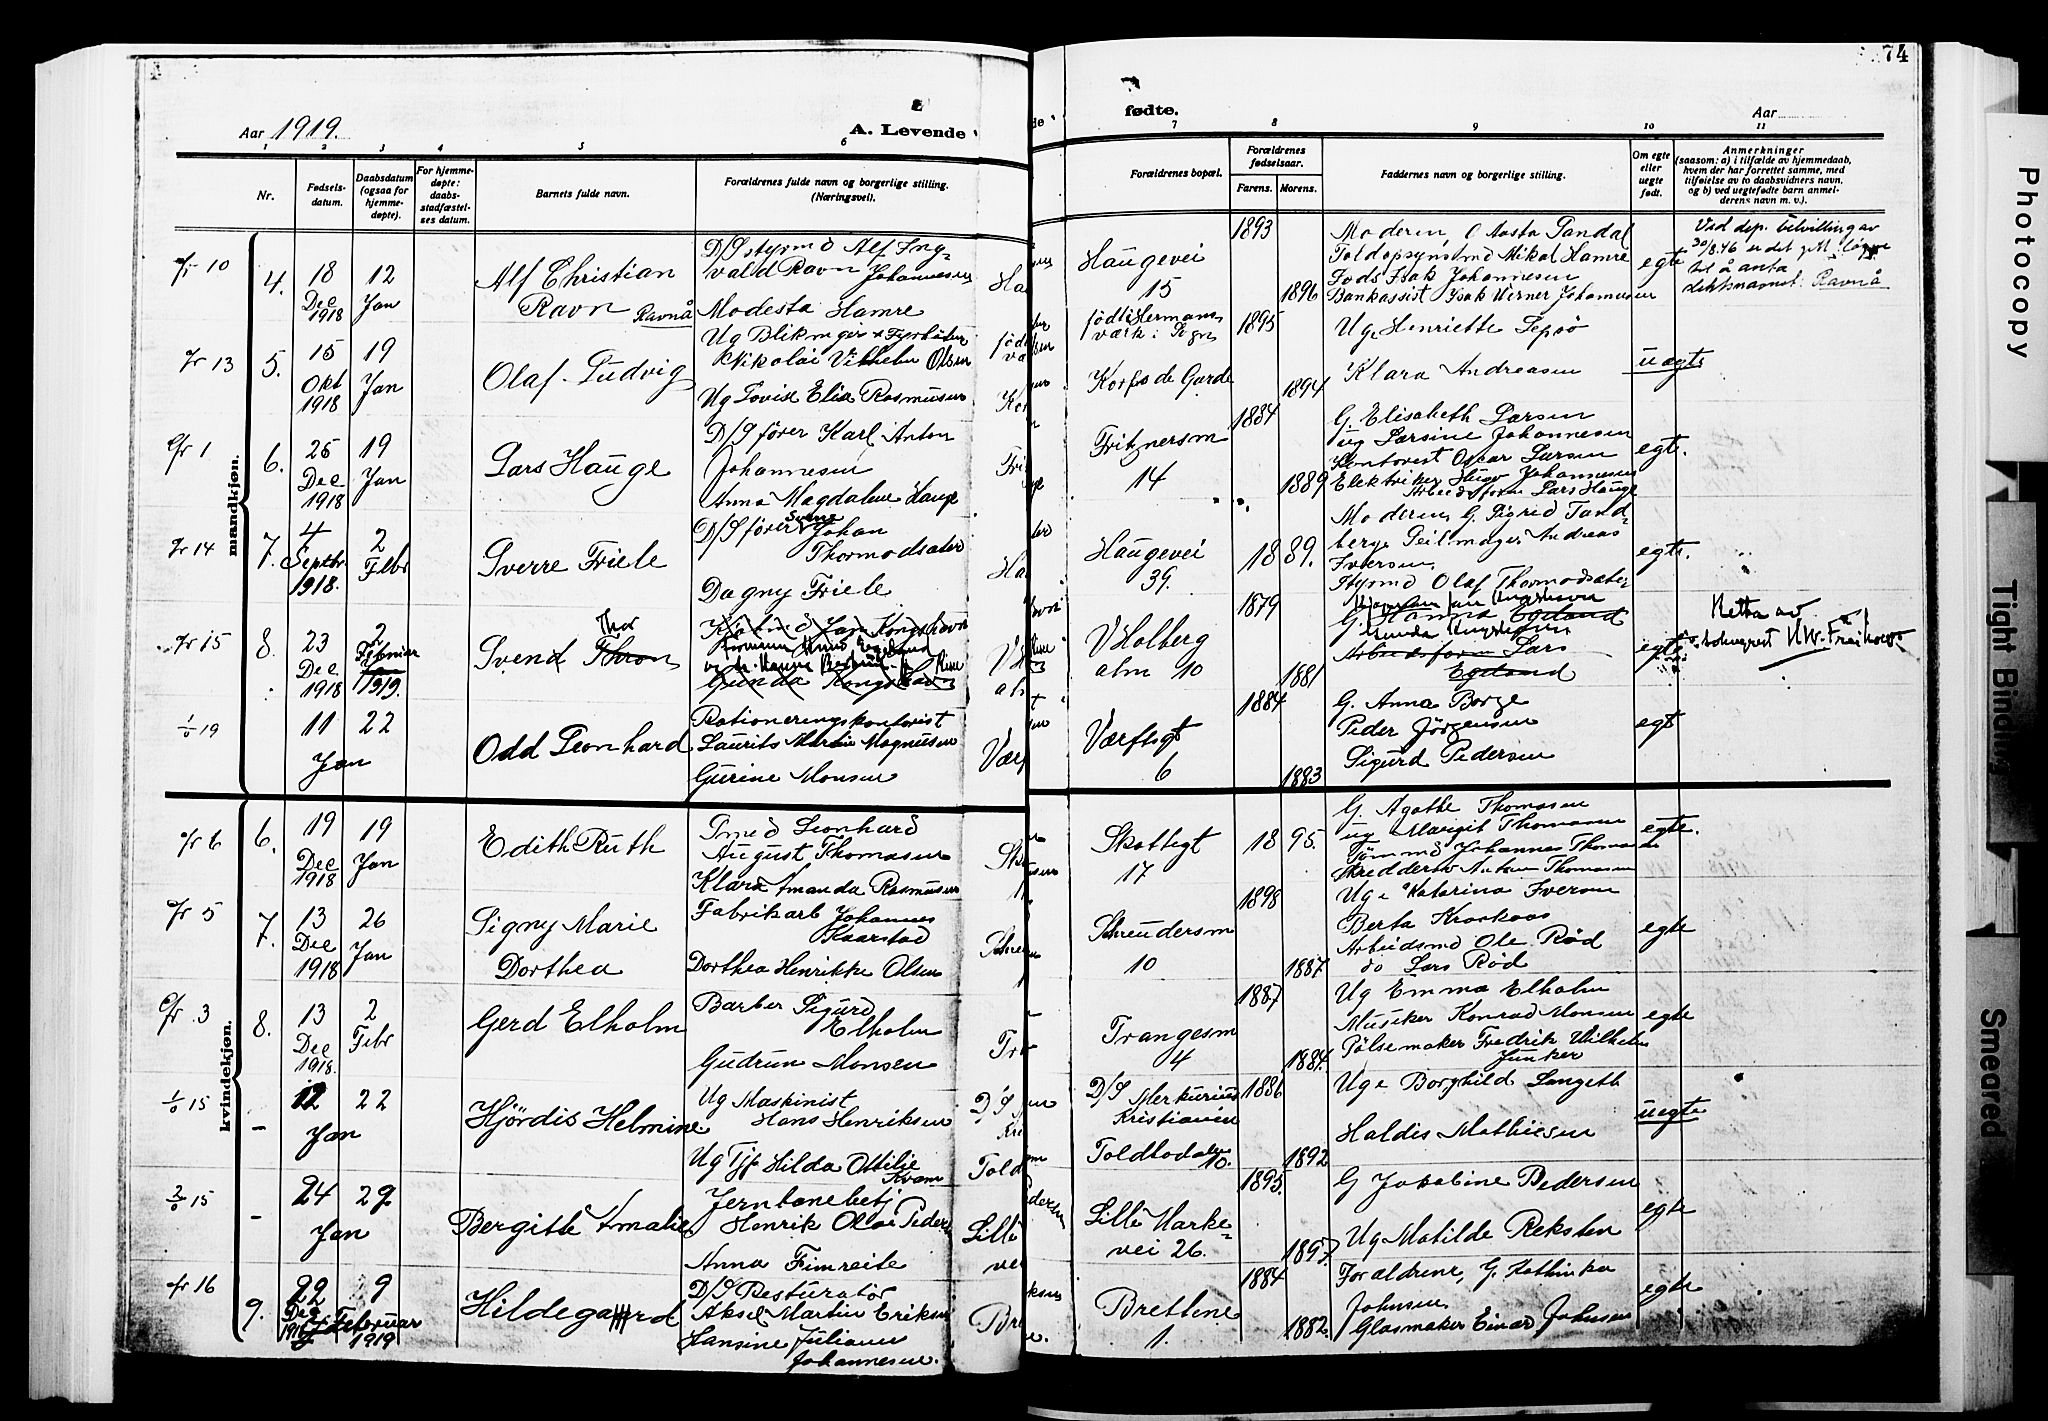 74
Aar 1919.
A. Levende
fødte.
Aar
1 2 3 4 5 6
7 8 9 10 11
Nr.
Fødsels-
datum.
Daabsdatum
(ogsaa for
hjemme-
døpte).
For hjemme-
døpte:
daabs-
stadfæstel-
ses datum.
Barnets fulde navn.
Forældrenes fulde navn og borgerlige stilling.
(Næringsvei).
Forældrenes bopæl.
Forældrenes
fødselsaar.
Farens. Morens.
Faddernes navn og borgerlige stilling.
Om egte
eller
uegte
født.
Anmerkninger
(saasom: a) i tilfælde av hjemmedaab,
hvem der har forrettet samme, med
tilføielse av to daabsvidners navn,
og b) ved uegtefødte barn anmel-
derens navn m. v.).
mandkjøn.
10
4.
18
Dec
1918
12
Jan
Alf Christian
Ravn Ravnå
D/S styrmd Alf Ing-
vald Ravn Johannesen
Modesta Hamre
Haugevei
15
1893
1896
Moderen, Aasta Sandal
Toldopsynsmd Mikal Hamre
Isak Johannesen
Bankassist Isak Werner Johannesen
egte
Ved dep. bevilling av
30/8.46 er det gitt
til å anta
slektsnavnet: Ravnå
13
5.
15
Okt
1918
19
Jan
Olaf Ludvig
Nikolai Vilhelm Olsen
Ug Lovise Elia Rasmussen
født i Hermans
værk i Sogn
Korps de Garde
1895
1894
Uge Henriette Sepsø
Klara Andreasen
uegte
1
6.
25
Dec
1918
19
Jan
Lars Hauge
D/S fører Karl Anton
Johannesen
Anna Magdalene Hauge
Fritznersm
14
1884
1889
G. Elisabeth Larsen
ug Larsine Johannesen
Kontorist Oscar Larsen
Elektriker Hugo Johannesen
Arbeidsform Lars Hauge
egte.
14
7.
4
Septbr
1918.
2
Febr
Sverre Friele
D/S fører Svend Johan
Thormodsater
Dagny Friele
Haugevei
39.
1889.
Moderen, G. Sigrid Tand-
berg, Seilmager Andreas
Iversen,
Styrmd Olaf Thormodsater
egte.
15
8.
23
Dec
1918
2
Februar
1919.
Svend Thor
Thron
Gunda Kongshavn
V Holberg
alm 10
1879
1881
Arbeidsform Lars
Egeland
egte
Retta av
19
11
Jan
22
Odd Leonhard
Rationeringskontorist
Laurits Martin Magnussen
Gurine Monsen
Værftsgt
6
1884
1883
G. Anna Borge
Peder Jörgensen
Sigurd Pedersen
egte
kvindekjøn.
6
6.
19
Dec
1918
19
Jan
Edith Ruth
Smed Leonhard
August Thomasen
Klara Amanda Rasmussen
Skottegt
17
1895.
G. Agathe Thomasen
ug Margit Thomasen
Tømmd Johannes Thoma
Skredderm Anton Thomasen
egte.
5
7.
13
Dec
1918
26
Jan
Signy Marie
Dorthea
Fabrikarb Johannes
Kaarstad
Dorthea Henrikke Olsen
Schreudersm
10
1898
1887.
Uge Katarina Iversen
Berta
Arbeidsmd Ole Rød
do Lars Rød
egte
3
8.
13
Dec
1918.
2
Febr
Gerd Elholm
Barber Sigurd
Elholm
Gudrun Monsen
Trangesm
4
1887
1884.
Ug Emma Elholm
Musiker Konrad Monsen
Pølsemaker Fredrik Wilhelm
Junker
egte
15
12
Jan
22
Hjördis Helmine
Ug Maskinist
Hans Henriksen
Ug Tjp Hilda Ottilie
Kvam
D/S Merkurius
Kristiania
Toldbodalm
10.
1886
1892
Uge Borghild Langeth
Haldis Mathiesen
uegte
15
24
Jan
29
Bergithe Amalie
Jernbanebetj
Henrik Olai Peders
Anna Fimreite
Lille Marke-
vei 26.
1895.
1897
G Jakobine Pedersen
Ug Matilde Reksten
egte
16
9.
22
Dec
9
Februar
1919
Hildegard
D/S Resturatör
Aksel Martin Eriksen
Hansine Juliane
Johannesen.
Brettene
1.
1884
1882.
Forældrene, G. Kathinka
Johnsen,
Glasmaker Einar Johnsen
egte
Photocopy
Tight Binding
Smeared